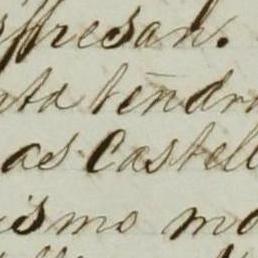 presan.
nta tendr
as Castell
ismo mo